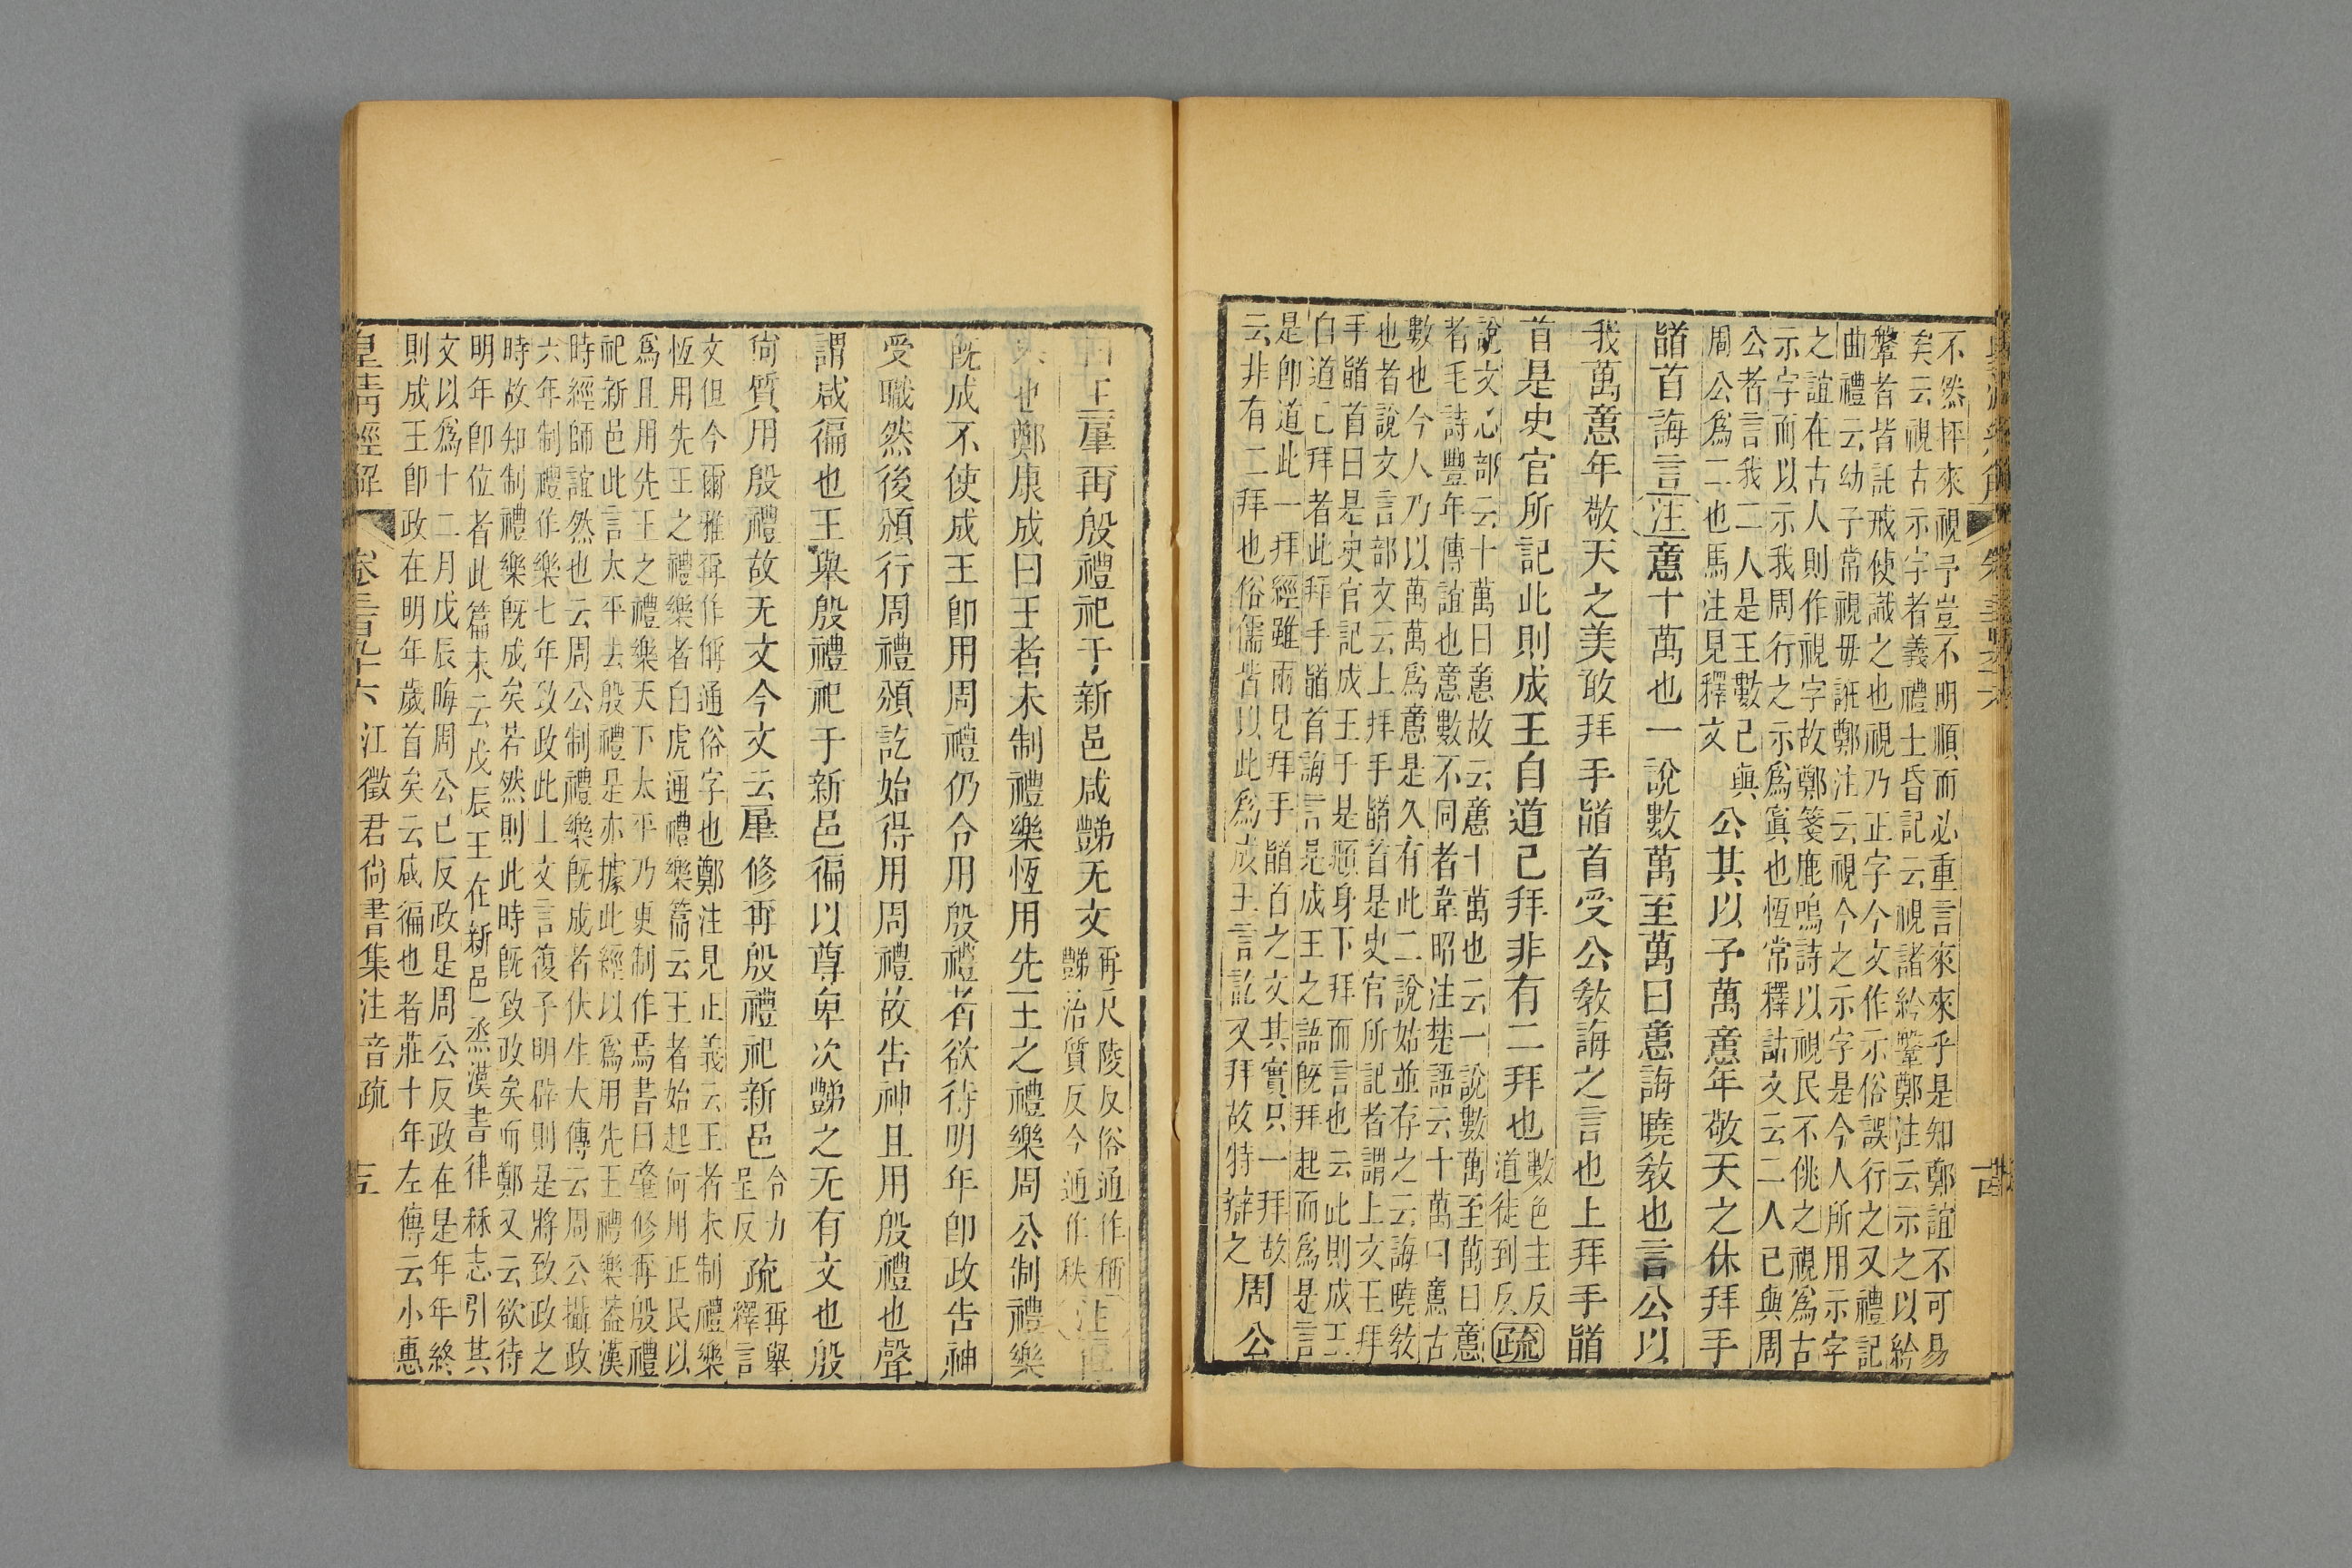 不然抨來視予豈不明順而必重言來來乎是知鄭誼不可易
矣云視古示字者義禮士昏記云視諸紟鞶鄭注云示之以紟
鞶者皆託戒使識之也視乃正字今文作示俗誤行之又禮記
曲禮云幼子常視毋誑鄭注云視今之示字是今人所用示字
之誼在古人則作視字故鄭箋鹿鳴詩以視民不佻之視爲古
示字而以示我周行之示爲寘也恆常釋詁文云二人己與周
公者言我二人是王數己與
周公爲二也馬注見釋文
公其以予萬𠶷年敬天之休拜手
䭫首誨言注𠶷十萬也一說數萬至萬曰𠶷誨曉敎也言公以
我萬𠶷年敬天之美敢拜手䭫首受公敎誨之言也上拜手䭫
首是史官所記此則成王自道己拜非有二拜也
數色主反
道徒到反
疏
說文心部云十萬曰𠶷故云𠶷十萬也云一說數萬至萬曰𠶷
者毛詩豐年傳誼也𠶷數不同者韋昭注楚語云十萬曰𠶷古
數也今人乃以萬萬爲𠶷是久有此二說姑並存之云誨曉敎
也者說文言部文云上拜手䭫首是史官所記者謂上文王拜
手䭫首曰是史官記成王于是頫身下拜而言也云此則成王
自道己拜者此拜手䭫首誨言是成王之語旣拜起而爲是言
是卽道此一拜經雖兩見拜手䭫首之文其實只一拜故
云非有二拜也俗儒皆以此爲成王言訖又拜故特辯之
周公
曰王肁再殷禮祀于新邑咸豑无文
再尺陵反俗通作稱
豑治質反今通作秩
注
也鄭康成曰王者未制禮樂恆用先王之禮樂周公制禮樂
旣成不使成王卽用周禮仍令用殷禮者欲待明年卽政告神
受職然後頒行周禮頒訖始得用周禮故告神且用殷禮也聲
謂咸徧也王㪯殷禮祀于新邑徧以尊卑次豑之无有文也殷
尙質用殷禮故无文今文文云肁修再殷禮祀新邑
令力
呈反
疏
再舉
釋言
文但今爾雅再作偁通俗字也鄭注見正義云王者未制禮樂
恆用先王之禮樂者白虎通禮樂篇云王者始起何用正民以
爲且用先王之禮樂天下太平乃更制作焉書曰肇修再殷禮
祀新邑此言太平去殷禮是亦據此經以爲用先王禮樂葢漢
時經師誼然也云周公制禮樂旣成者伏生大傳云周公攝政
六年制禮作樂七年致政此上文言復子明辟則是將致政之
時故知制禮樂旣成矣若然則此時旣致政矣而鄭又云欲待
明年卽位者此篇末云戊辰王在新邑烝漢書律秝志引其
文以爲十二月戊辰晦周公己反政是周公反政在是年年終
則成王卽政在明年歲首矣云咸徧也者莊十年左傳云小惠
皇清經解
卷三百九十六
江徵君尙書集注音疏